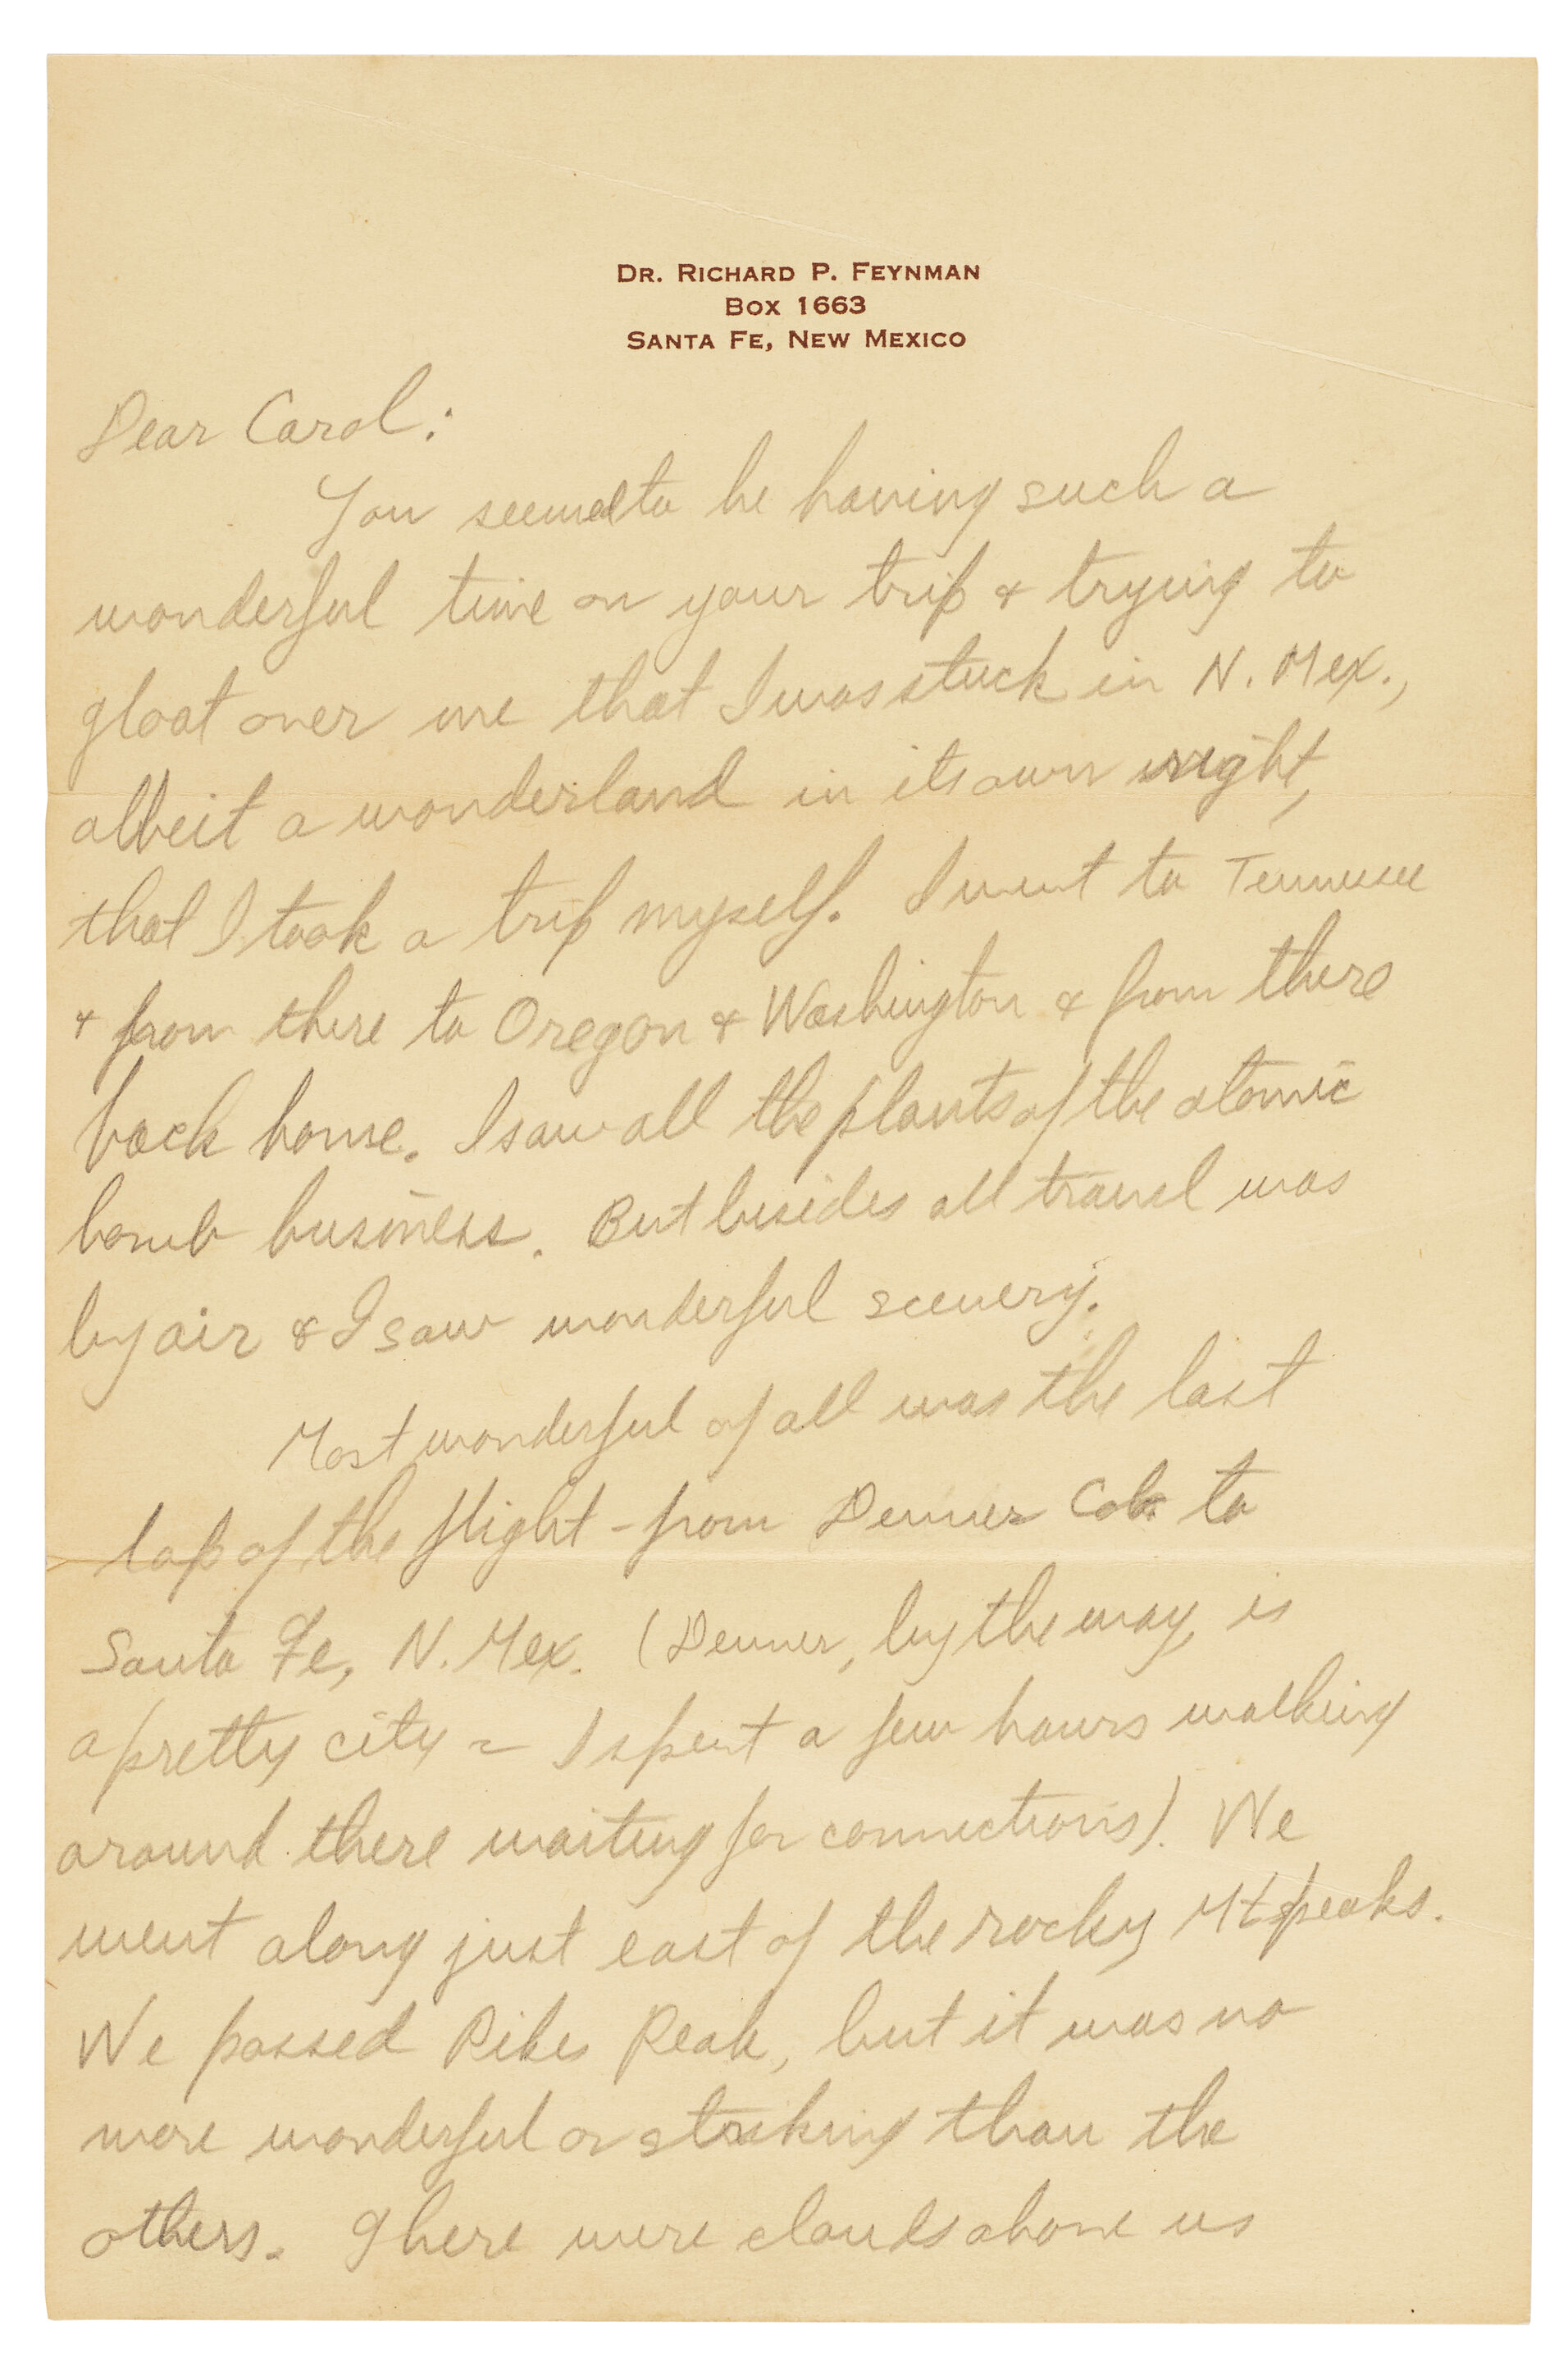 DR. RICHARD P. FEYNMAN
BOX 1663
SANTA FE, NEW MEXICO
Dear Carol:
You seemed to be having such a
wonderful time on your trip & trying to
gloat over me that I was stuck in N. Mex.,
albeit a wonderland in its own right,
that I took a trip myself. I went to Tennessee
& from there to Oregon & Washington & from there
back home. I saw all the plants of the atomic
bomb business. But besides all travel was
by air & I saw wonderful scenery.
Most wonderful of all was the last
lap of the flight - from Denver Colo to
Santa Fe, N. Mex. (Denver, by the way, is
a pretty city - I spent a few hours walking
around there waiting for connections). We
went along just east of the rocky Mt peaks.
We passed Pikes Peak, but it was no
more wonderful or striking than the
others. There were clouds above us